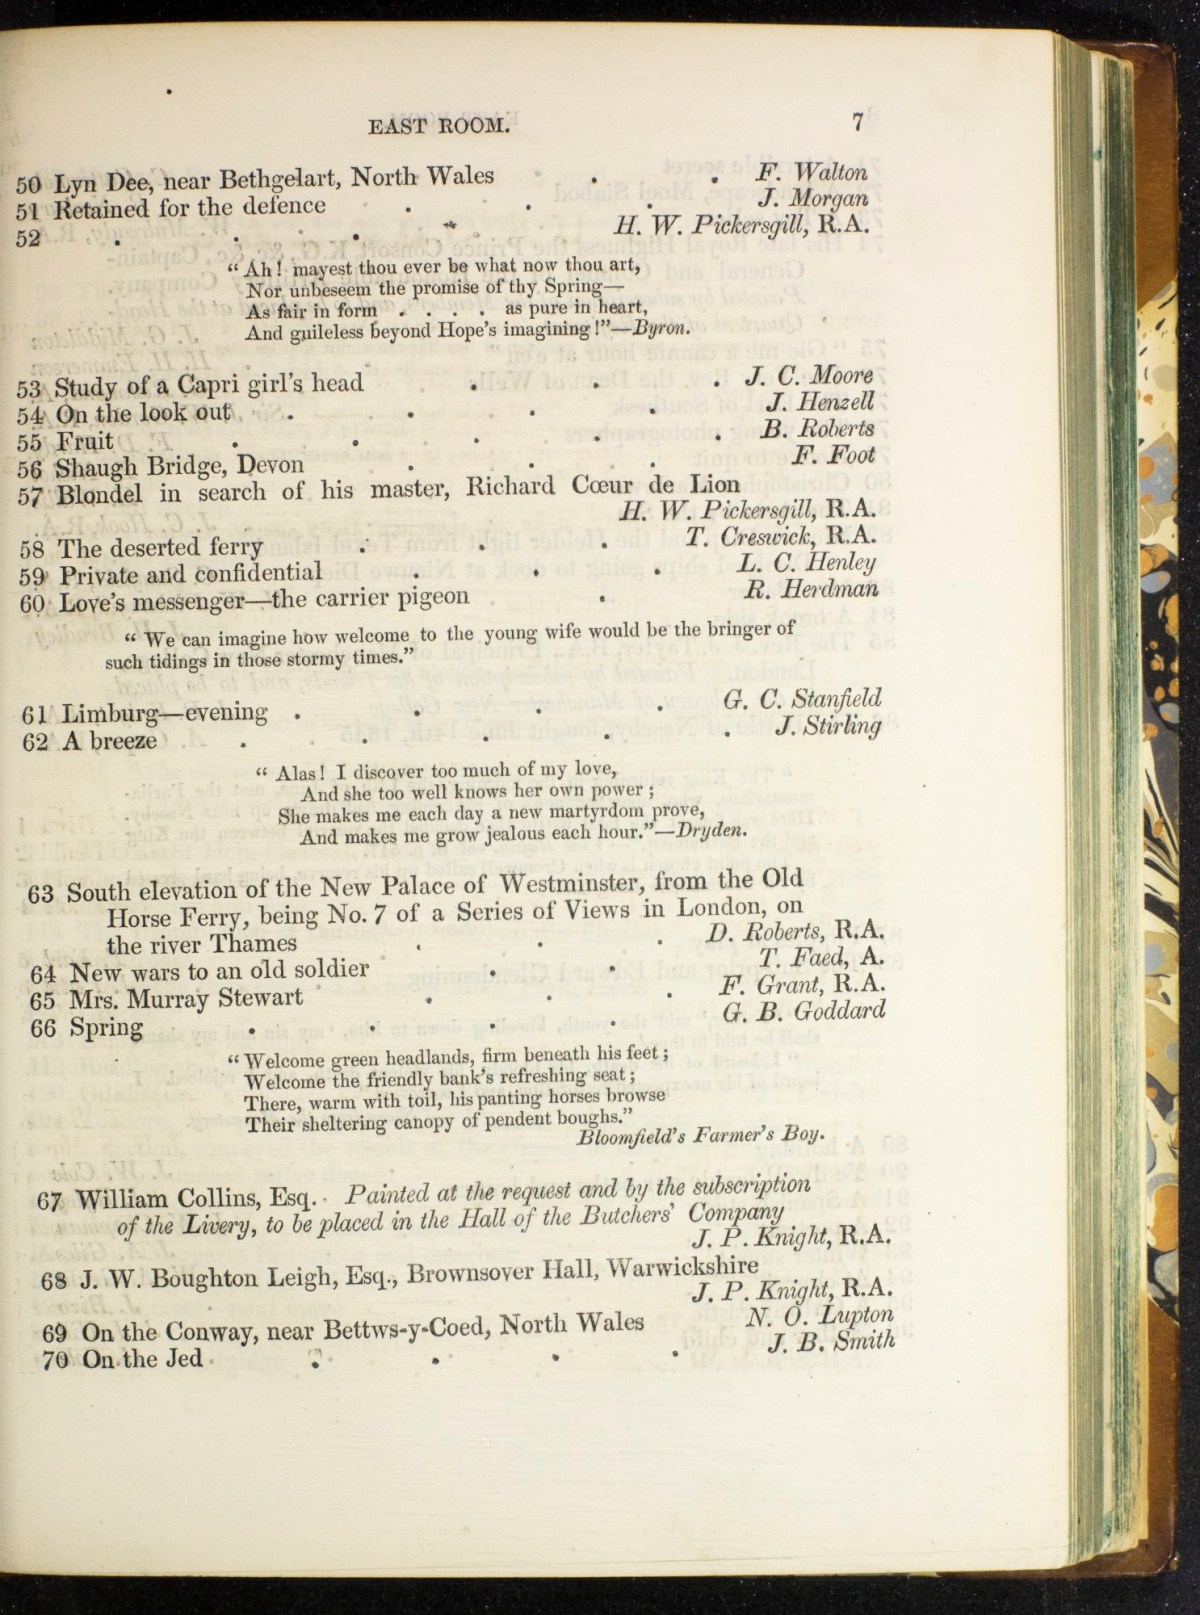 EAST ROOM. 7
50 Lyn Dee, near Bethgelart, North Wales . . F. Walton
51 Retained for the defence . . . J. Morgan
52 . . . * H. W. Pickersgill, R.A.
“Ah! mayest thou ever be what now thou art,
Nor unbeseem the promise of thy Spring—
As fair in form . . . . as pure in heart,
And guileless beyond Hope's imagining!”—Byron.
53 Study of a Capri girl's head . . . J. C. Moore
54 On the look out . . . . J. Henzell
55 Fruit . . . . . B. Roberts
56 Shaugh Bridge, Devon . . . F. Foot
57 Blondel in search of his master, Richard Cœur de Lion
H. W. Pickersgill, R.A.
58 The deserted ferry . . . T. Creswick, R.A.
59 Private and confidential . . . L. C. Henley
60 Love's messenger—the carrier pigeon . R. Herdman
“We can imagine how welcome to the young wife would be the bringer of
such tidings in those stormy times.”
61 Limburg—evening . . . . G. C. Stanfield
62 A breeze . . . . . J. Stirling
“Alas! I discover too much of my love,
And she too well knows her own power;
She makes me each day a new martyrdom prove,
And makes me grow jealous each hour.”—Dryden.
63 South elevation of the New Palace of Westminster, from the Old
Horse Ferry, being No. 7 of a Series of Views in London, on
the river Thames . . . D. Roberts, R.A.
64 New wars to an old soldier . . T. Faed, A.
65 Mrs. Murray Stewart . . . F. Grant, R.A.
66 Spring . . . . G. B. Goddard
“Welcome green headlands, firm beneath his feet;
Welcome the friendly bank's refreshing seat;
There, warm with toil, his panting horses browse
Their sheltering canopy of pendent boughs.”
Bloomfield's Farmer's Boy.
67 William Collins, Esq. . Painted at the request and by the subscription
of the Livery, to be placed in the Hall of the Butchers' Company
J. P. Knight, R.A.
68 J. W. Boughton Leigh, Esq., Brownsover Hall, Warwickshire
J. P. Knight, R.A.
69 On the Conway, near Bettws-y-Coed, North Wales N. O. Lupton
70 On the Jed . . . . J. B. Smith